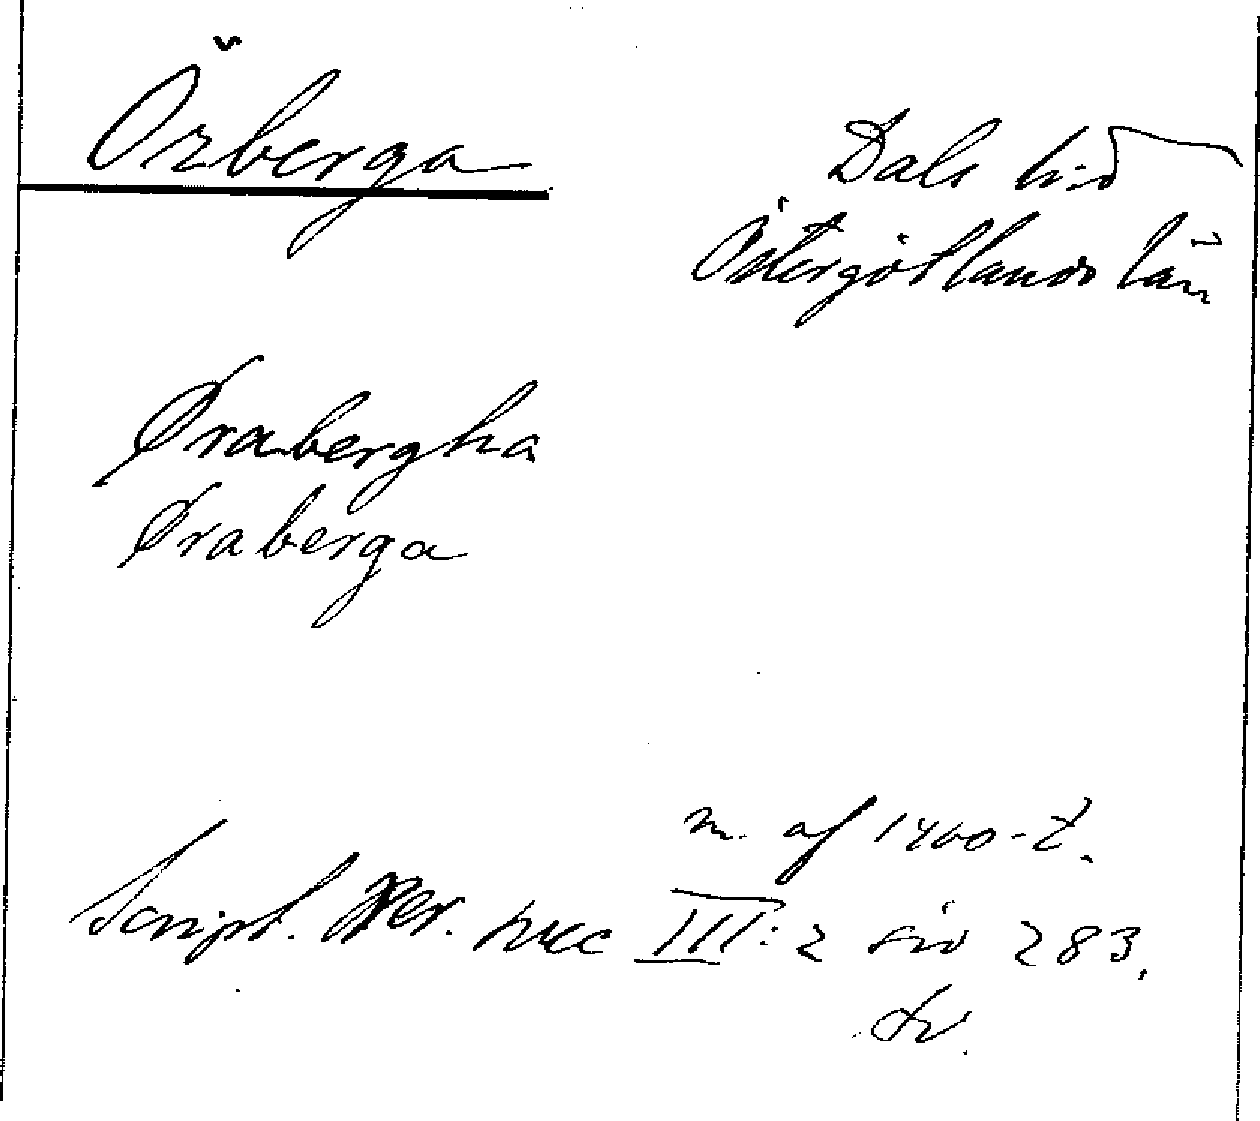 Örberga
Dals hd
Östergötlands län
Ørabergha
Øraberga
m. af 1400-t.
Script. Rer. svec III: 2 sid 283.